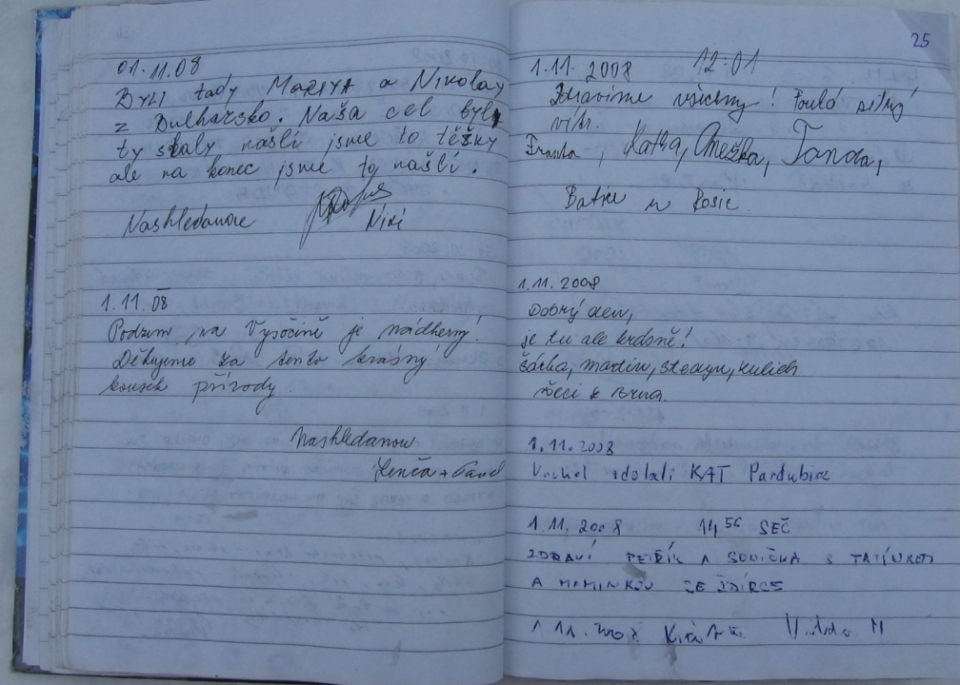 01.11.08
Byli tady MARIYA a NIKOLAY
z Bulharsko. Naša cel byly
ty skaly našli jsme to těžky
ale na konec jsme to našlí.
Nashledanoe
Niki
1.11.08
Podzim na Vysočině je nádherný!
Děkujeme za tento krásný
kousek přírody.
Nashledanou
Lenča + Pavel
25
1.11.2008 12:01
Zdravíme všechny! Fouká silný
vítr.
Franta, Katka, Anežka, Tonda,
1.11.2008
Dobrý den,
je tu ale krásně!
Šárka, Martin,
1.11.2008
Vrchol zdolali KČT Pardubice
1.11.2008 14 56 SEČ
ZDRAVÍ PETŘÍK A S TATÍNKEM
A MAMINKOU ZE ŽDÍRCE
1.11.2008